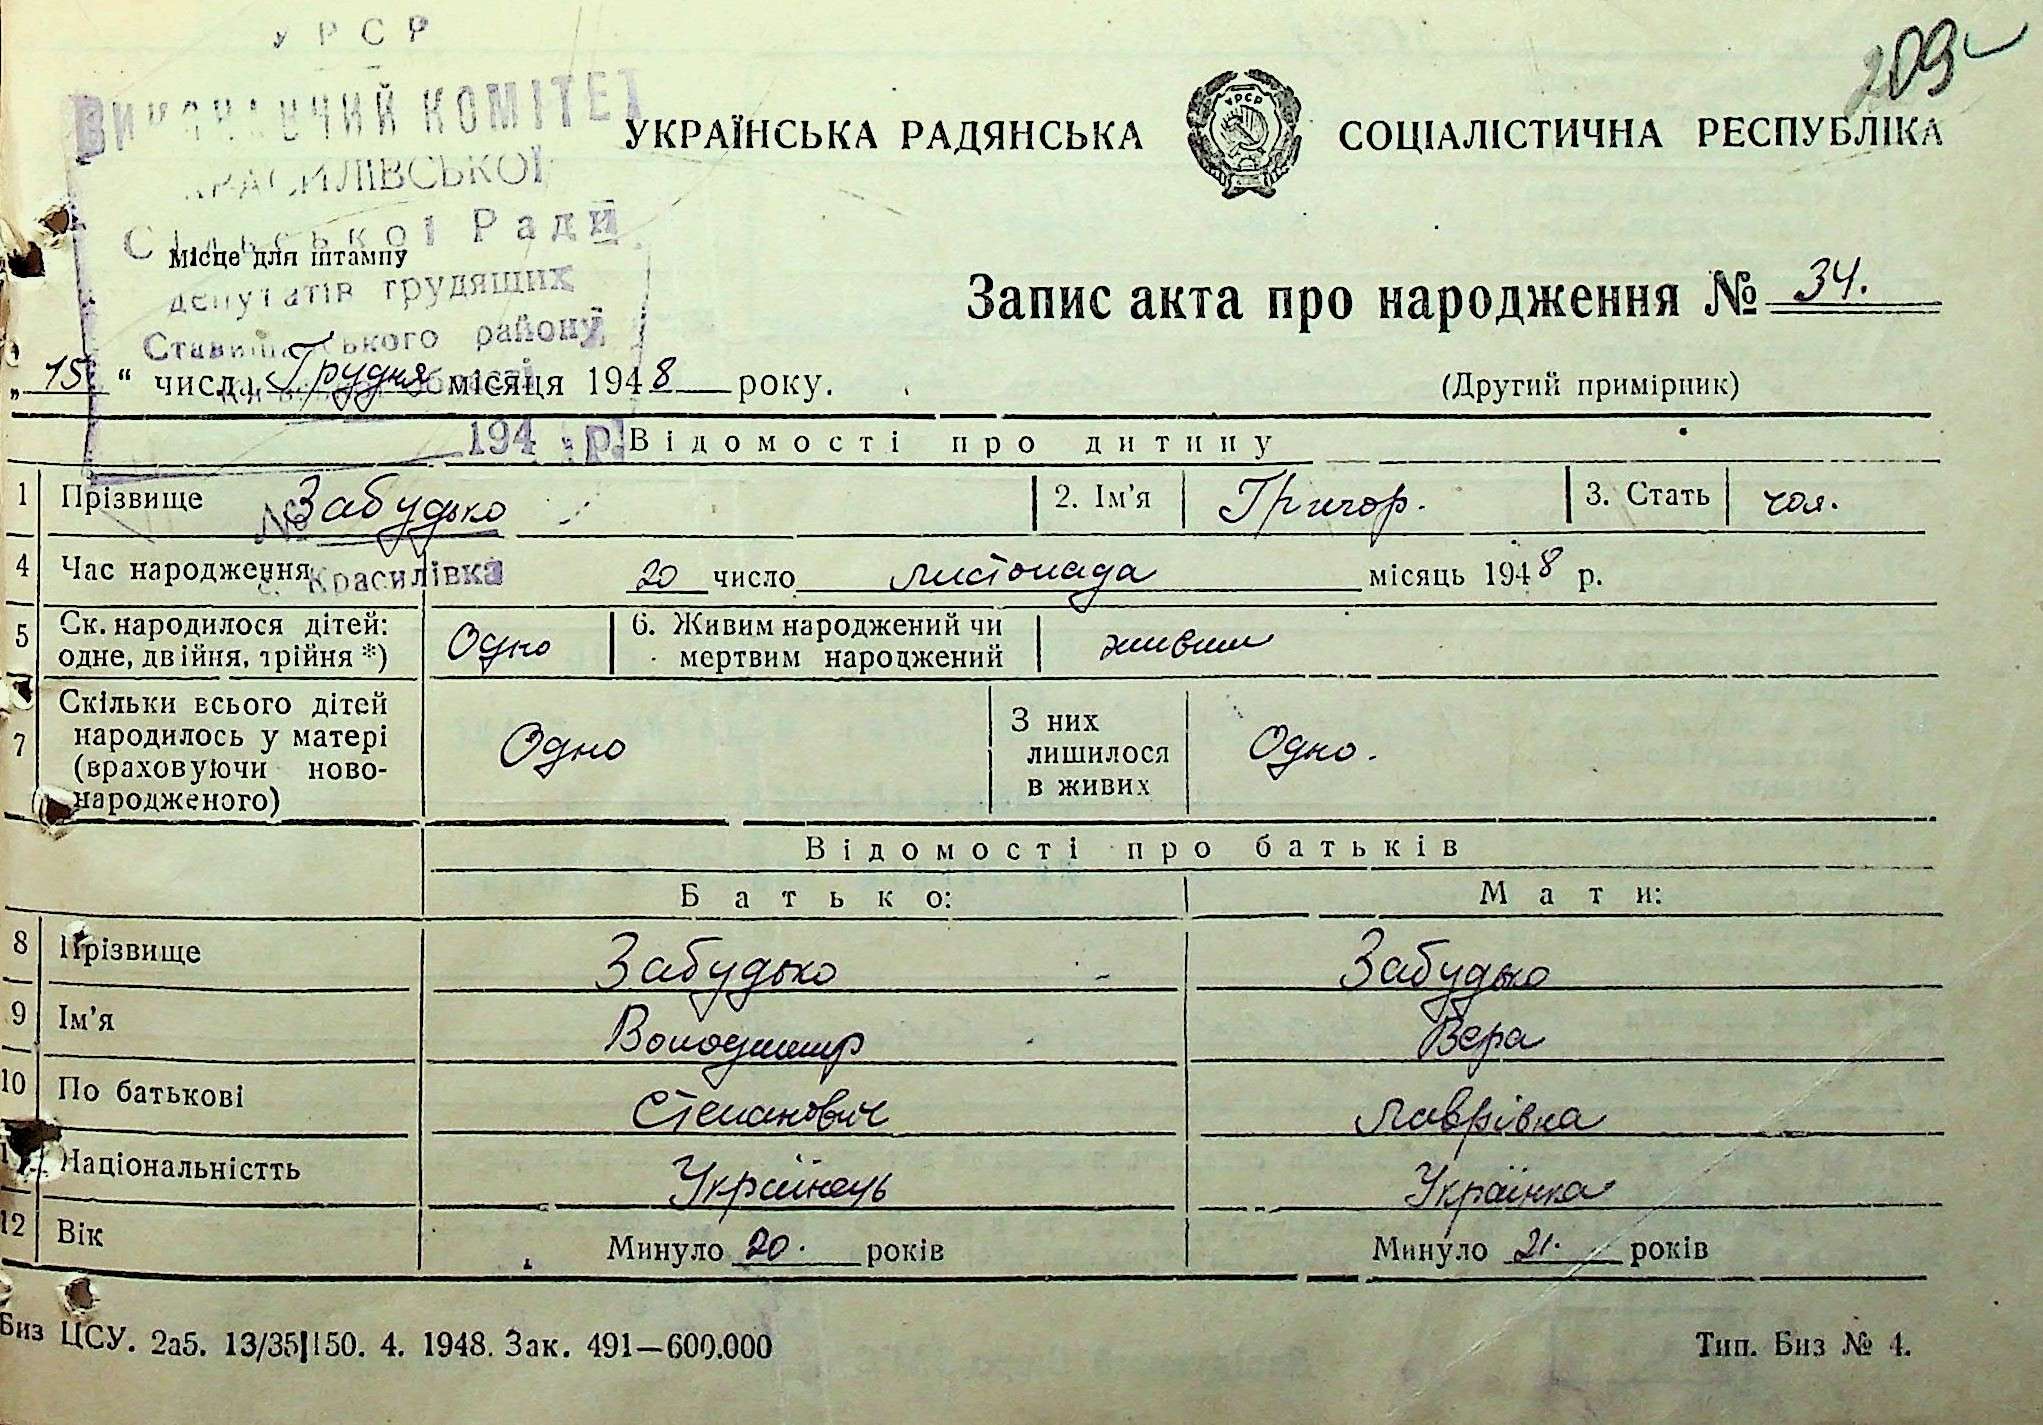 УРСР
ВИКОНАВЧИЙ КОМІТЕТ
КРАСИЛІВСЬКОЇ
Сільської Ради
депутатів трудящих
Ставищанського району
області
194 р.
№
с. Красилівка
209
УКРАЇНСЬКА РАДЯНСЬКА УРСР СОЦІАЛІСТИЧНА РЕСПУБЛІКА
Місце для штампу
Запис акта про народження № 34.
„15“ числа Грудня місяця 1948 року.
(Другий примірник)
Відомості про дитину
1 Прізвище Забудько 2. Ім’я Григор. 3. Стать чол.
4 Час народження 20 число листопада місяць 1948 р.
5 Ск. народилося дітей: одне, двійня, трійня *) Одно 6. Живим народжений чи мертвим народжений живим
7 Скільки всього дітей народилось у матері (враховуючи ново-народженого) Одно З них лишилося в живих Одно.
Відомості про батьків
Батько: Мати:
8 Прізвище Забудько Забудько
9 Ім’я Володимир Вера
10 По батькові Степанович Лаврівна
11 Національністть Українець Українка
12 Вік Минуло 20. років Минуло 21. років
Биз ЦСУ. 2а5. 13/35|150. 4. 1948. Зак. 491—600.000
Тип. Биз № 4.